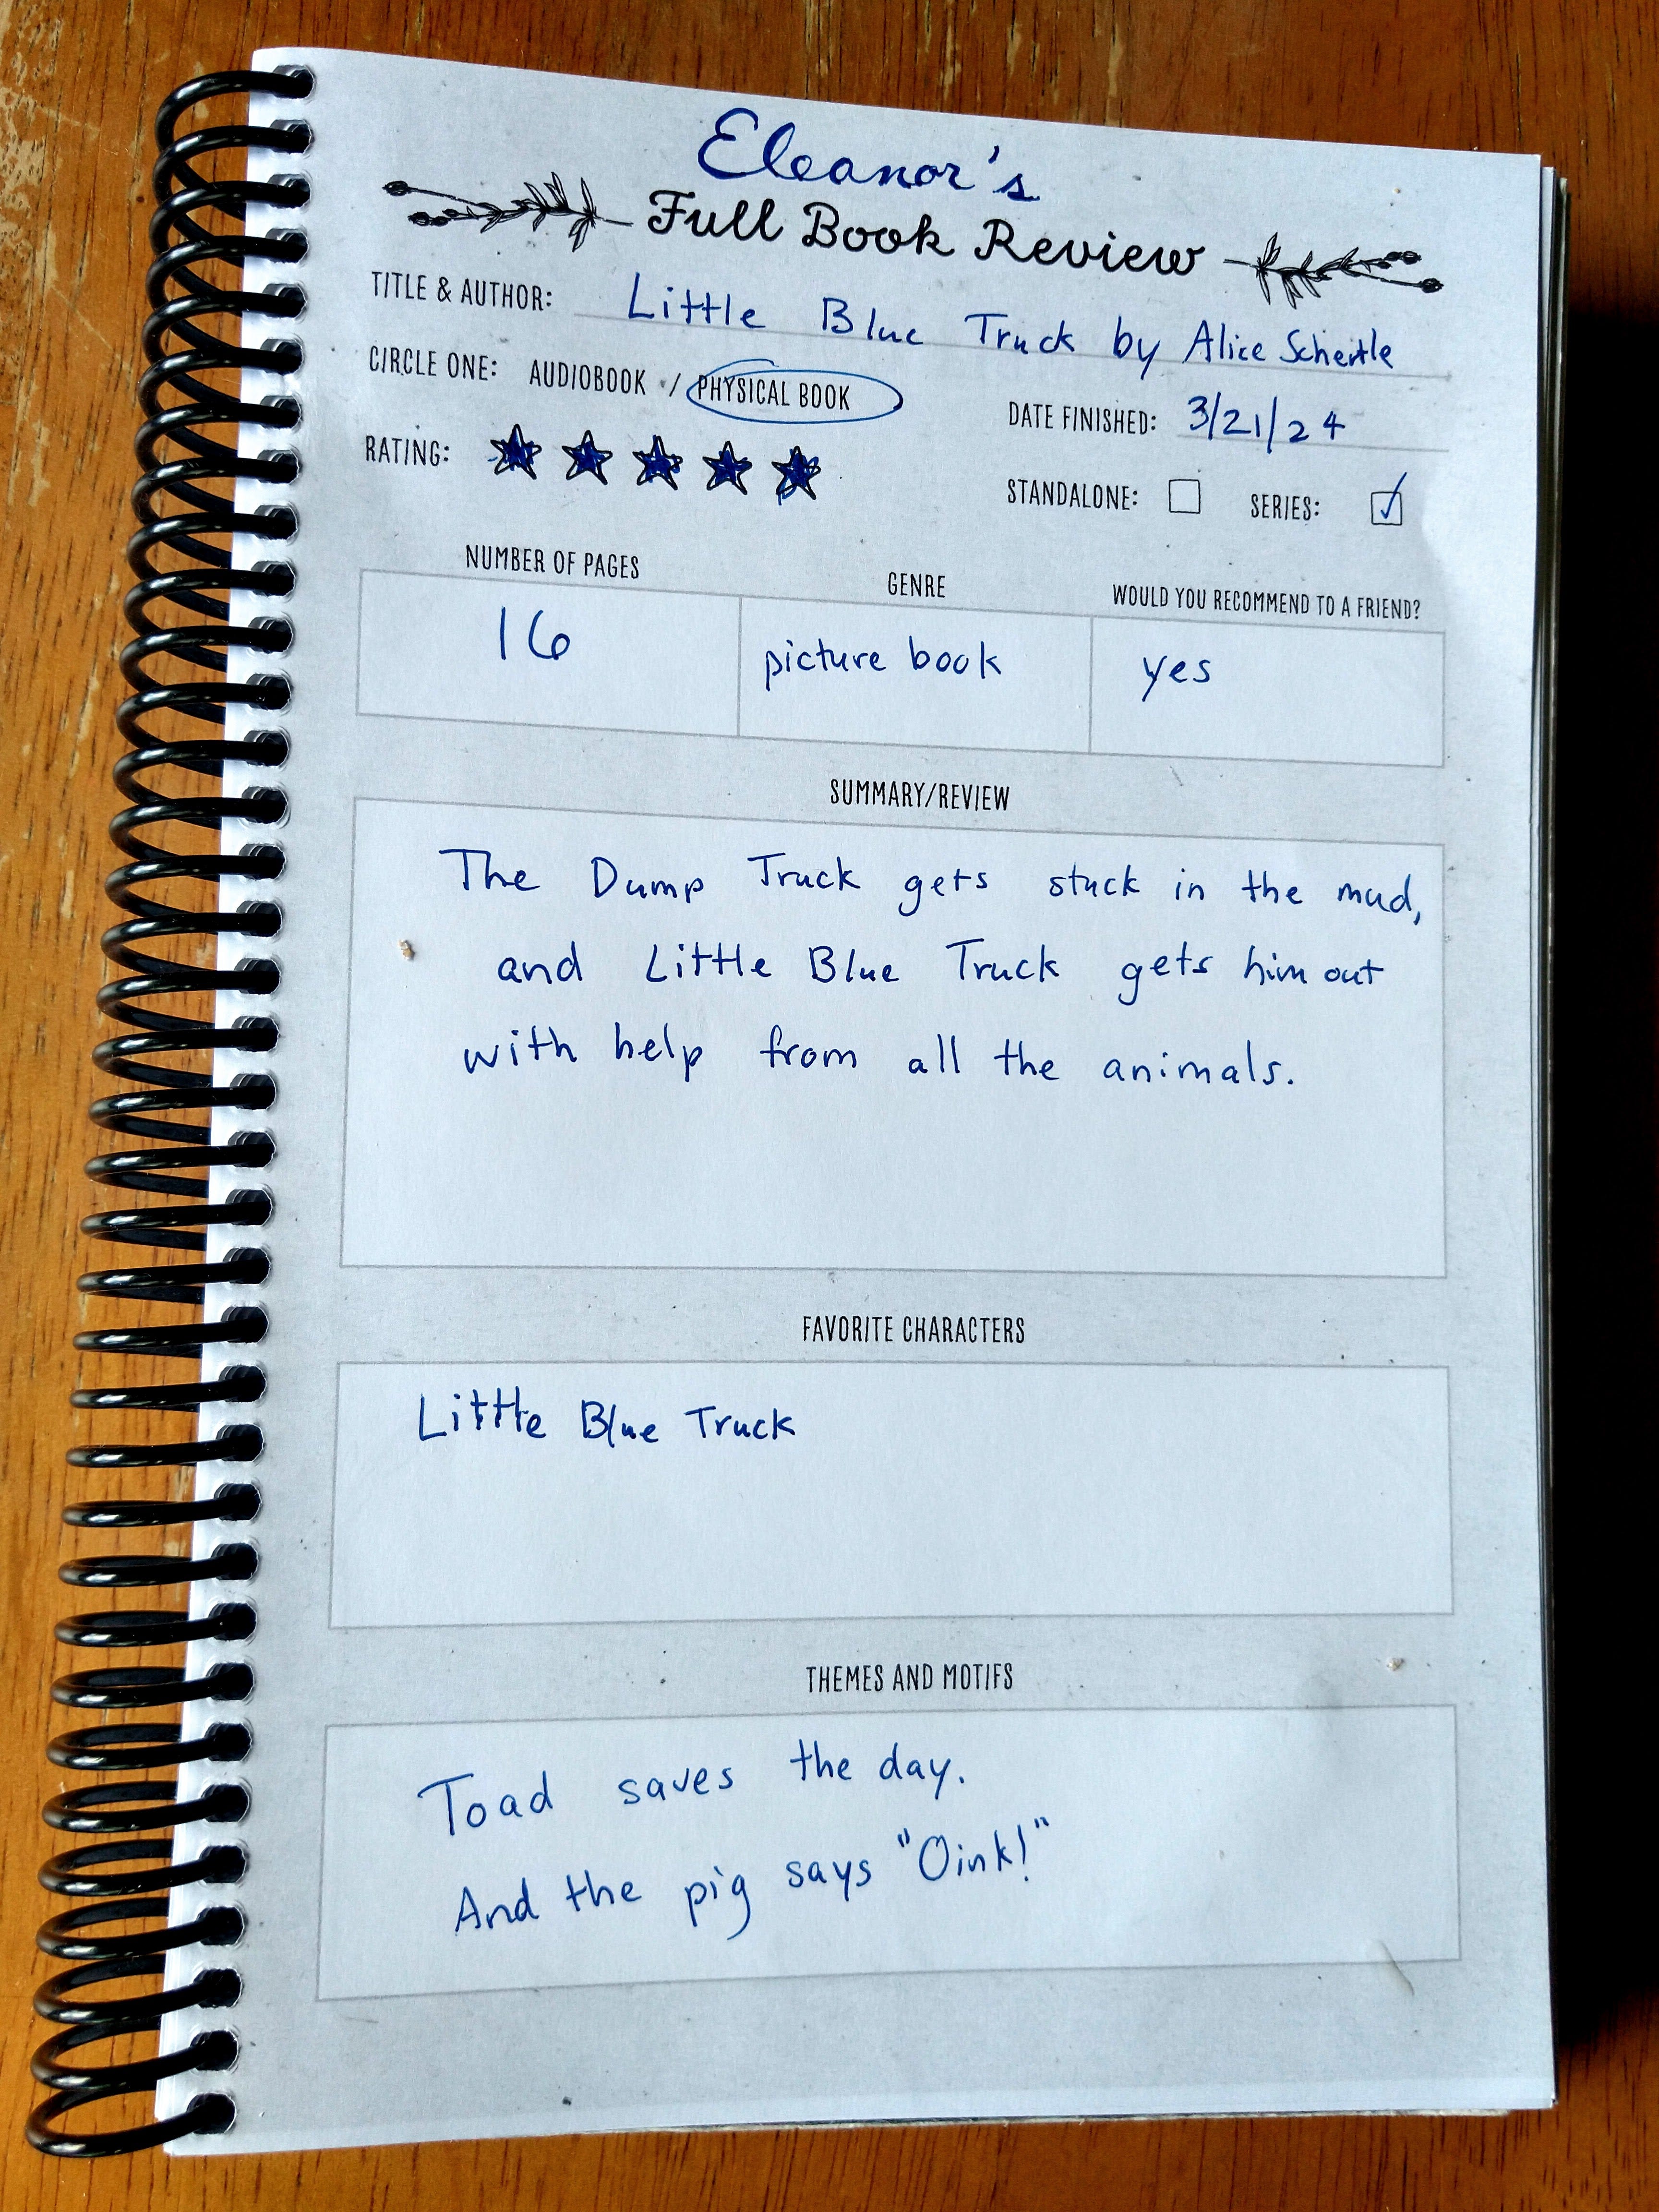 Eleanor's
Full Book Review
TITLE & AUTHOR: Little Blue Truck by Alice Schertle
CIRCLE ONE: AUDIOBOOK / PHYSICAL BOOK
DATE FINISHED: 3/21/24
RATING:
STANDALONE: SERIES:
NUMBER OF PAGES GENRE WOULD YOU RECOMMEND TO A FRIEND?
16 picture book yes
SUMMARY/REVIEW
The Dump Truck gets stuck in the mud,
and Little Blue Truck gets him out
with help from all the animals.
FAVORITE CHARACTERS
Little Blue Truck
THEMES AND MOTIFS
Toad saves the day.
And the pig says "Oink!"